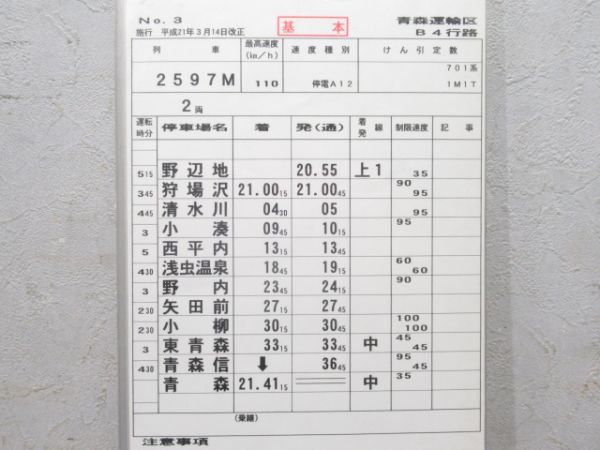 No. 3 基本 青森運輸区
施行 平成21年3月14日改正 B4行路
列車 最高速度(㎞/h) 速度種別 けん引定数
2597M 110 停電A12 701系
1M1T
2両
運転時分 停車場名 着 発(通) 着発線 制限速度 記事
515 野辺地 20.55 上1 35
345 狩場沢 21.0015 21.0045 90 95
445 清水川 0430 05 95
3 小湊 0945 1015 95
5 西平内 1315 1345
430 浅虫温泉 1845 1915 60 60
3 野内 2345 2415 90
230 矢田前 2715 2745
230 小柳 3015 3045 100 100
3 東青森 3315 3345 中 45 45
430 青森信 ⬇ 3645 95 45
青森 21.4115 中 35
(乗継)
注意事項